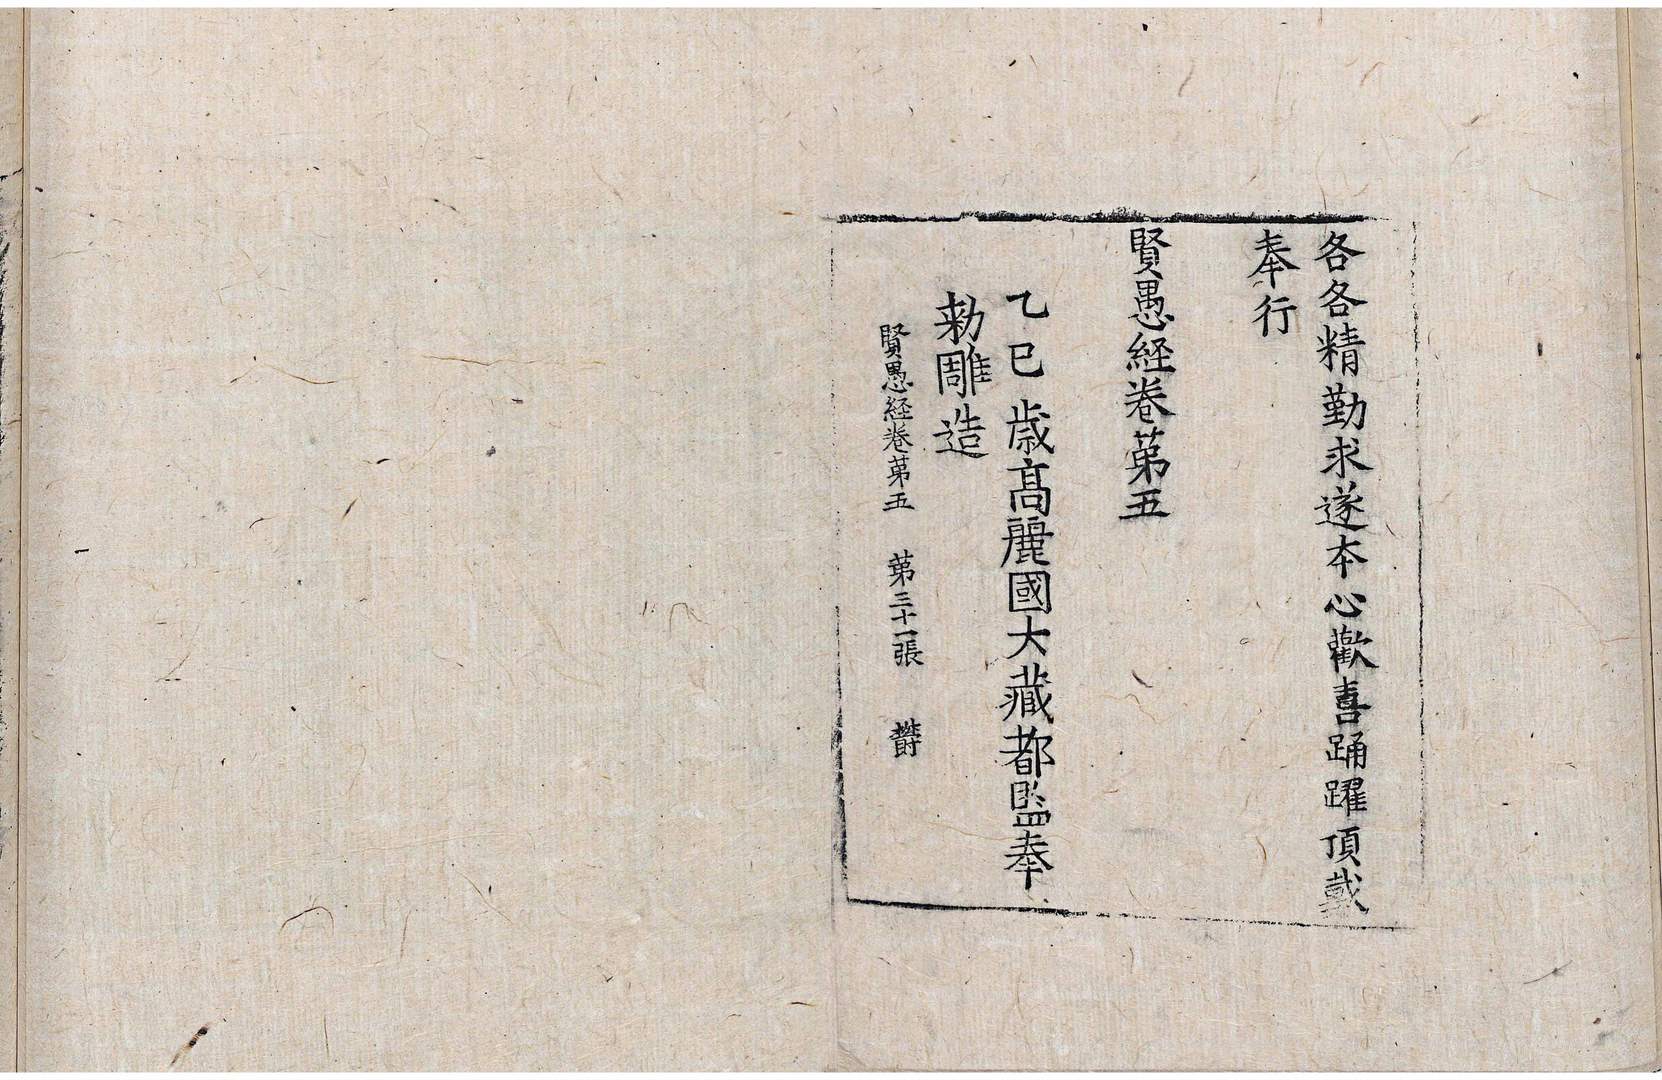 各各精勤求遂本心歡喜踊躍頂戴
奉行
賢愚経卷苐五
乙巳歳髙麗國大藏都監奉
勅雕造
賢愚経卷苐五 苐三十一張 欝